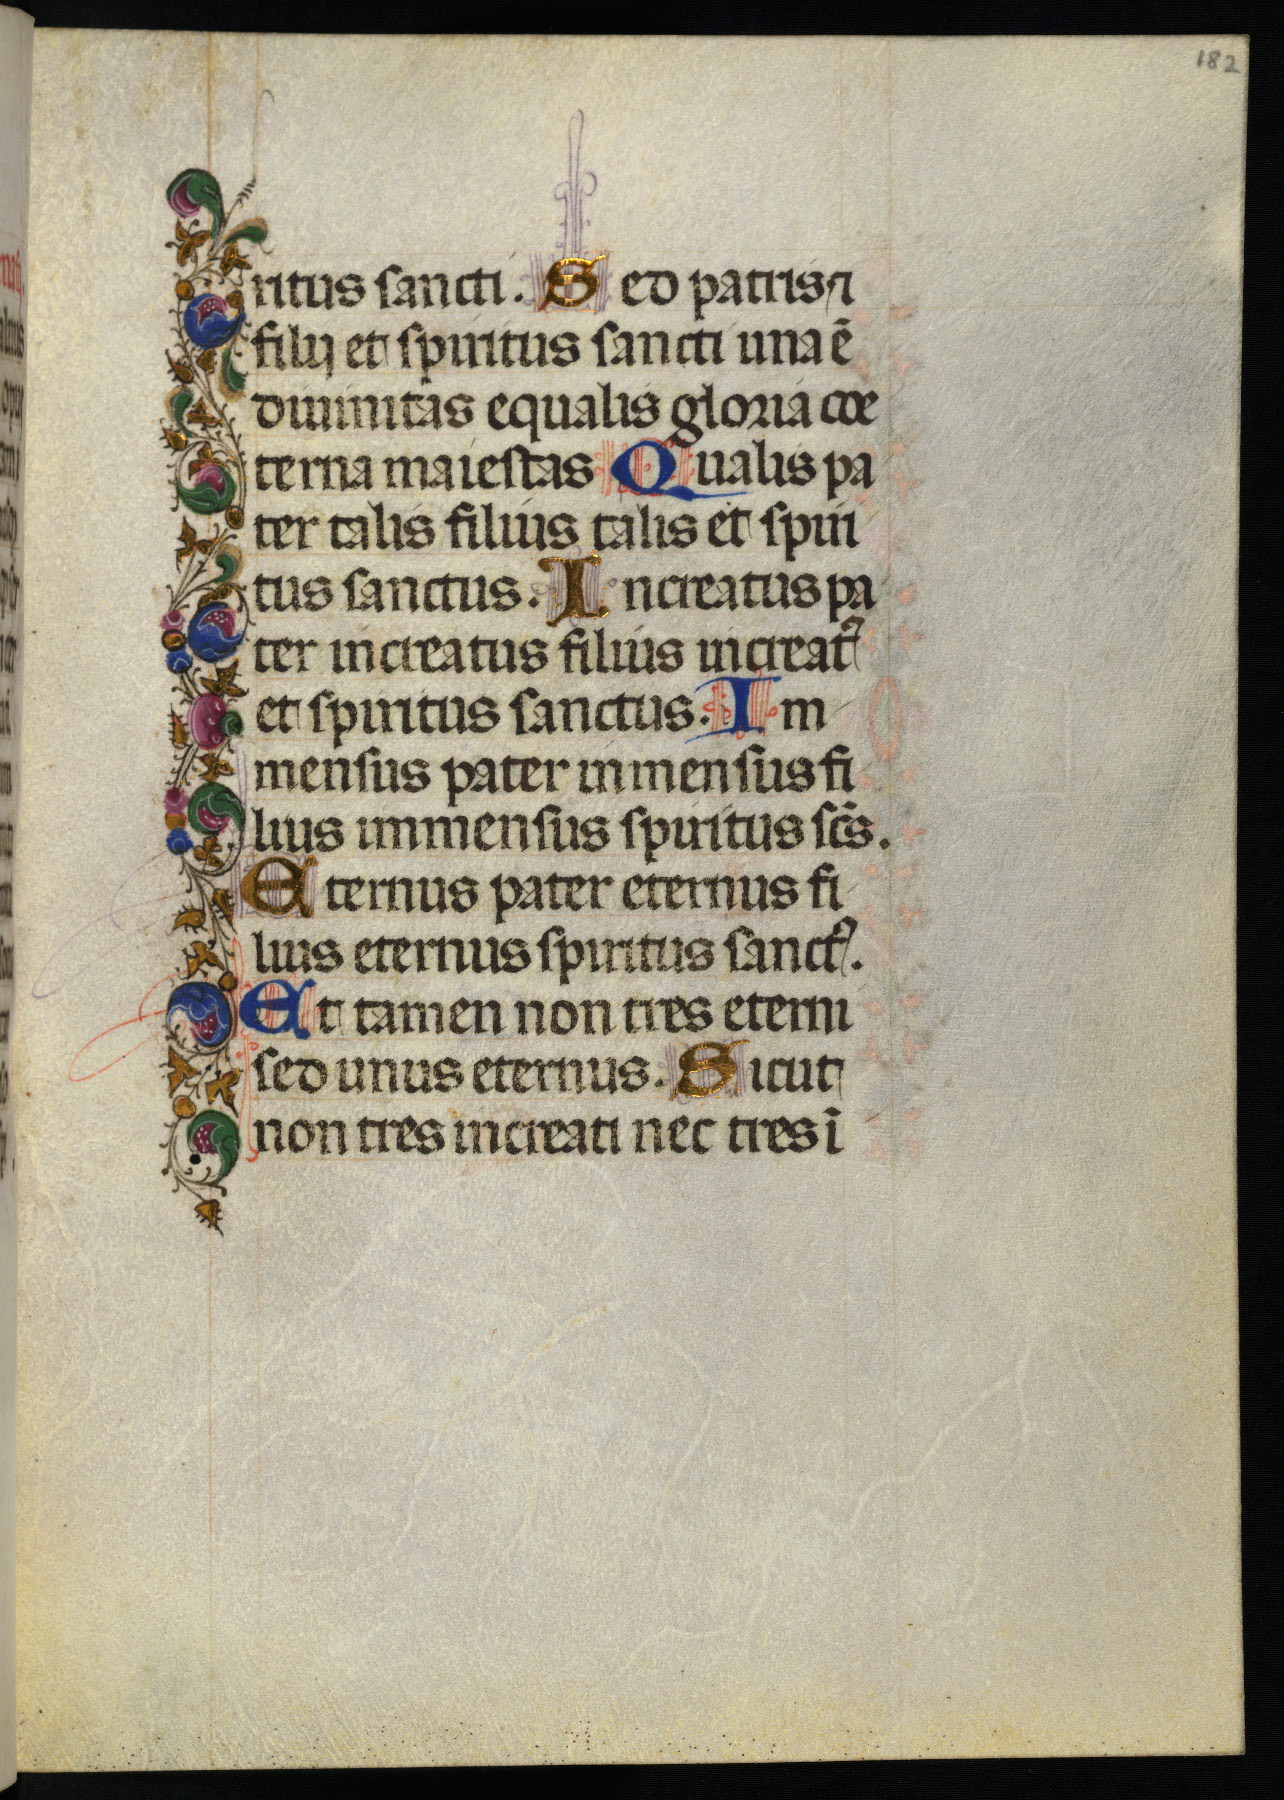 182
ritus sancti. Sed patris ⁊
filij et spiritus sancti una ē
diuinitas equalis gloria coe
terna maiestas Qualis pa
ter talis filius talis et spiri
tus sanctus. Increatus pa
ter increatus filius increatꝰ
et spiritus sanctus. Im
mensus pater inmensus fi
lius immensus spiritus scs̄.
Eternus pater eternus fi
lius eternus spiritus sanctꝰ.
Et tamen non tres eterni
sed unus eternus. Sicut
non tres increati nec tres ī